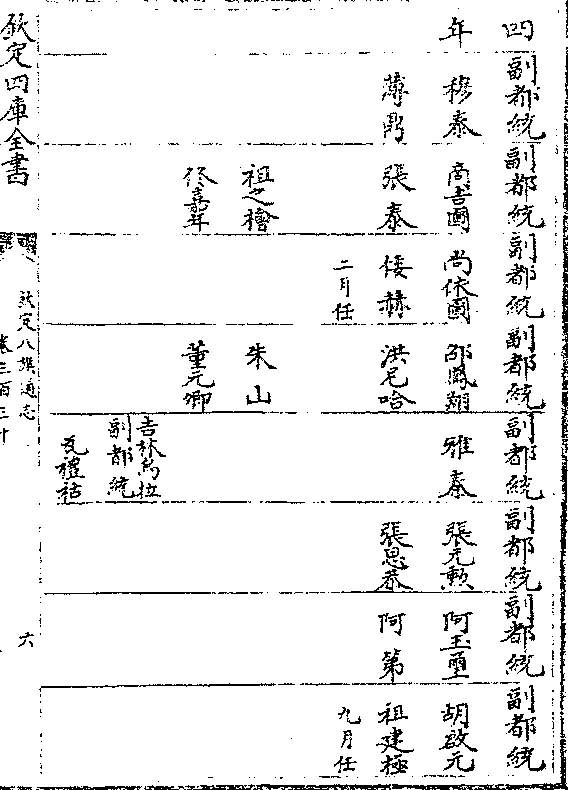 四
年
副都統
穆泰
薄鼎
副都統
商吉圖
張泰
祖之檜
佟嘉年
副都統
尚依圖
倭赫
二月任
副都統
邵鳳翔
洪尼哈
朱山
董元卿
副都統
雅泰
吉林烏拉
副都統
瓦禮祜
副都統
張元勲
張思恭
副都統
阿玉璽
阿第
副都統
胡啟元
祖建極
九月任
欽定四庫全書
欽定八旗通志
卷三百三十
六